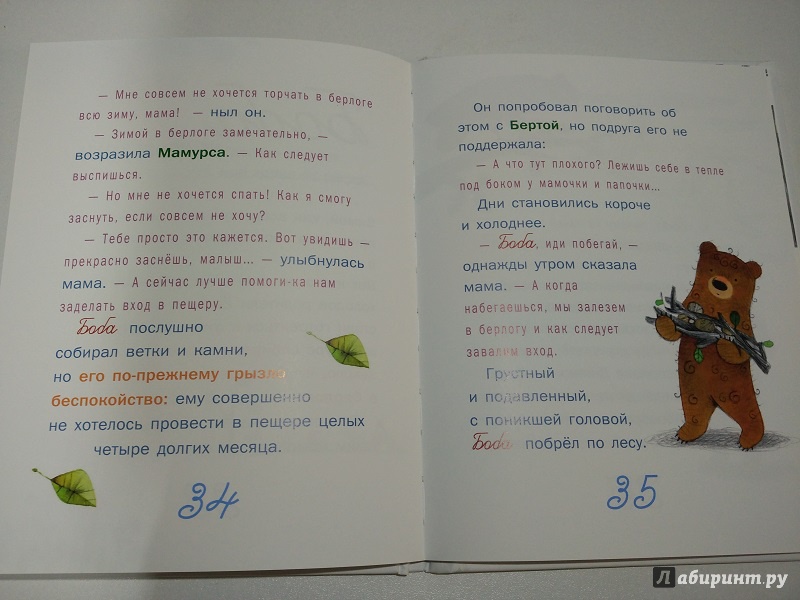 — Мне совсем не хочется торчать в берлоге
всю зиму, мама! — ныл он.
— Зимой в берлоге замечательно, —
возразила Мамурса. — Как следует
выспишься.
— Но мне не хочется спать! Как я смогу
заснуть, если совсем не хочу?
— Тебе просто это кажется. Вот увидишь —
прекрасно заснёшь, малыш... — улыбнулась
мама. — А сейчас лучше помоги-ка нам
заделать вход в пещеру.
Боба послушно
собирал ветки и камни,
но его по-прежнему грызло
беспокойство: ему совершенно
не хотелось провести в пещере целых
четыре долгих месяца.
34
Он попробовал поговорить об
этом с Бертой, но подруга его не
поддержала:
— А что тут плохого? Лежишь себе в тепле
под боком у мамочки и папочки...
Дни становились короче
и холоднее.
— Боба, иди побегай, —
однажды утром сказала
мама. — А когда
набегаешься, мы залезем
в берлогу и как следует
завалим вход.
Грустный
и подавленный,
с поникшей головой,
Боба побрёл по лесу.
35
Лабиринт.ру